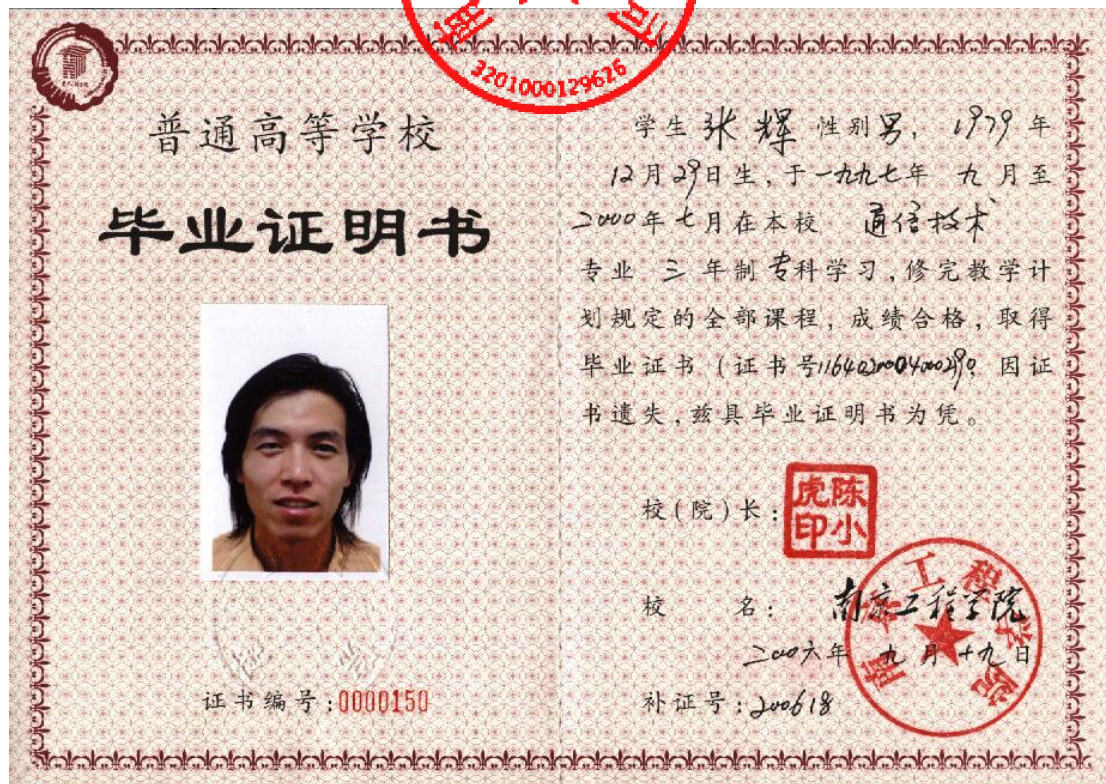 3201000129626
普通高等学校
毕业证明书
证书编号:0000150
学生 张辉 性别男, 1979 年
12月29日生,于一九九七年 九 月至
2000年七月在本校 通信技术
专业 三 年制 专科学习,修完教学计
划规定的全部课程,成绩合格,取得
毕业证书(证书号 因证
书遗失,兹具毕业证明书为凭。
校(院)长:
陈小虎印
校 名: 南京工程学院
二000六年 九 月 十九 日
补证号:200618
南京工程学院